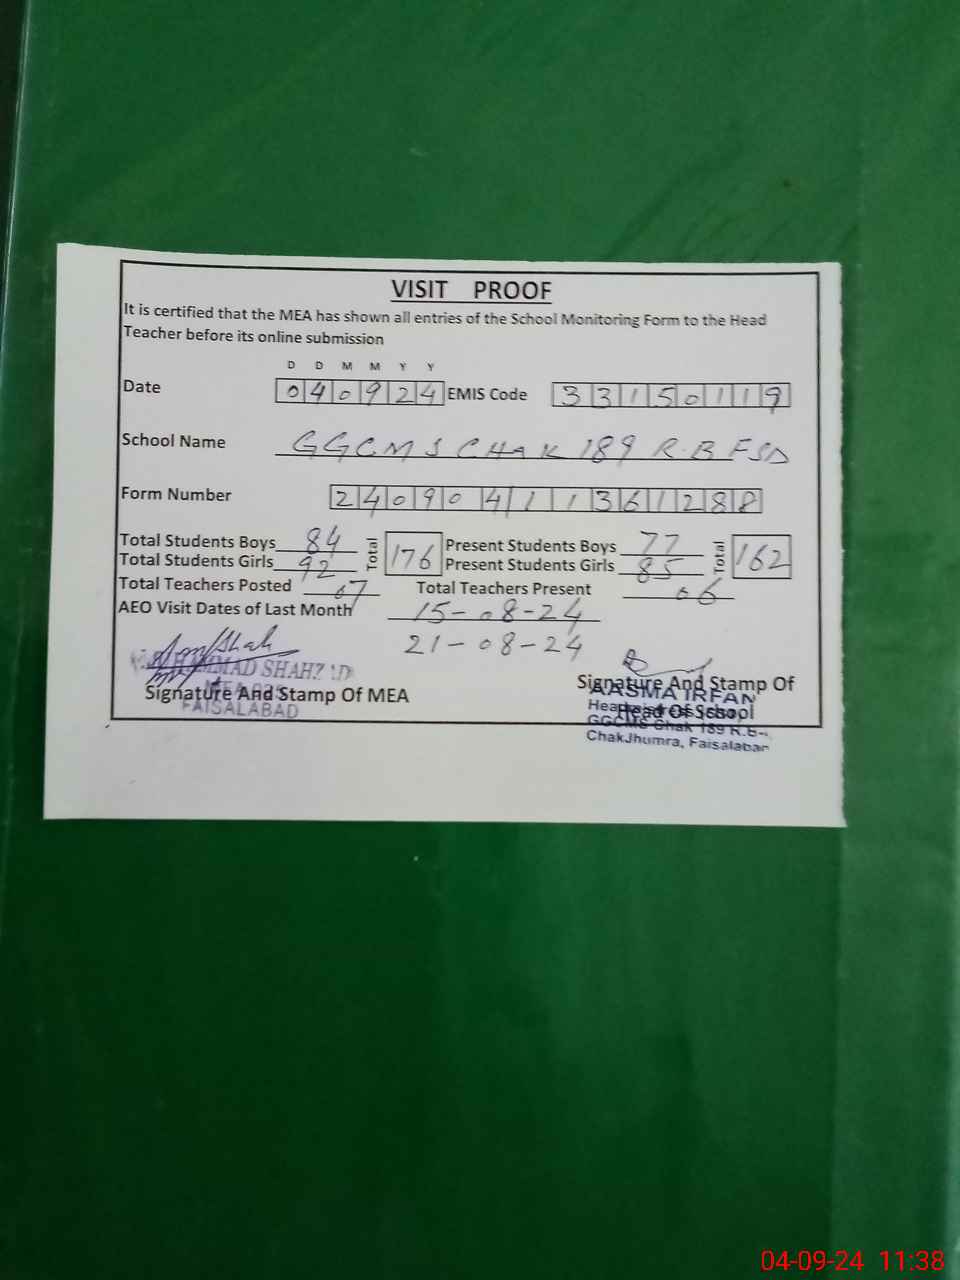 VISIT PROOF
It is certified that the MEA has shown all entries of the School Monitoring Form to the Head
Teacher before its online submission
D D M M Y Y
Date 040924 EMIS Code 33150119
School Name GGCMS CHAK 189 R.B FSD
Form Number 24090411361288
Total Students Boys 84 Total 176 Present Students Boys 77 Total 162
Total Students Girls 92 Present Students Girls 85
Total Teachers Posted 07 Total Teachers Present 06
AEO Visit Dates of Last Month 15-08-24
21-08-24
MUHAMMAD SHAHZAD
Signature And Stamp Of MEA
FAISALABAD
Signature And Stamp Of
AASMA IRFAN
Head Of School
GGCMS Chak 189 R.B-
ChakJhumra, Faisalabad
04-09-24 11:38